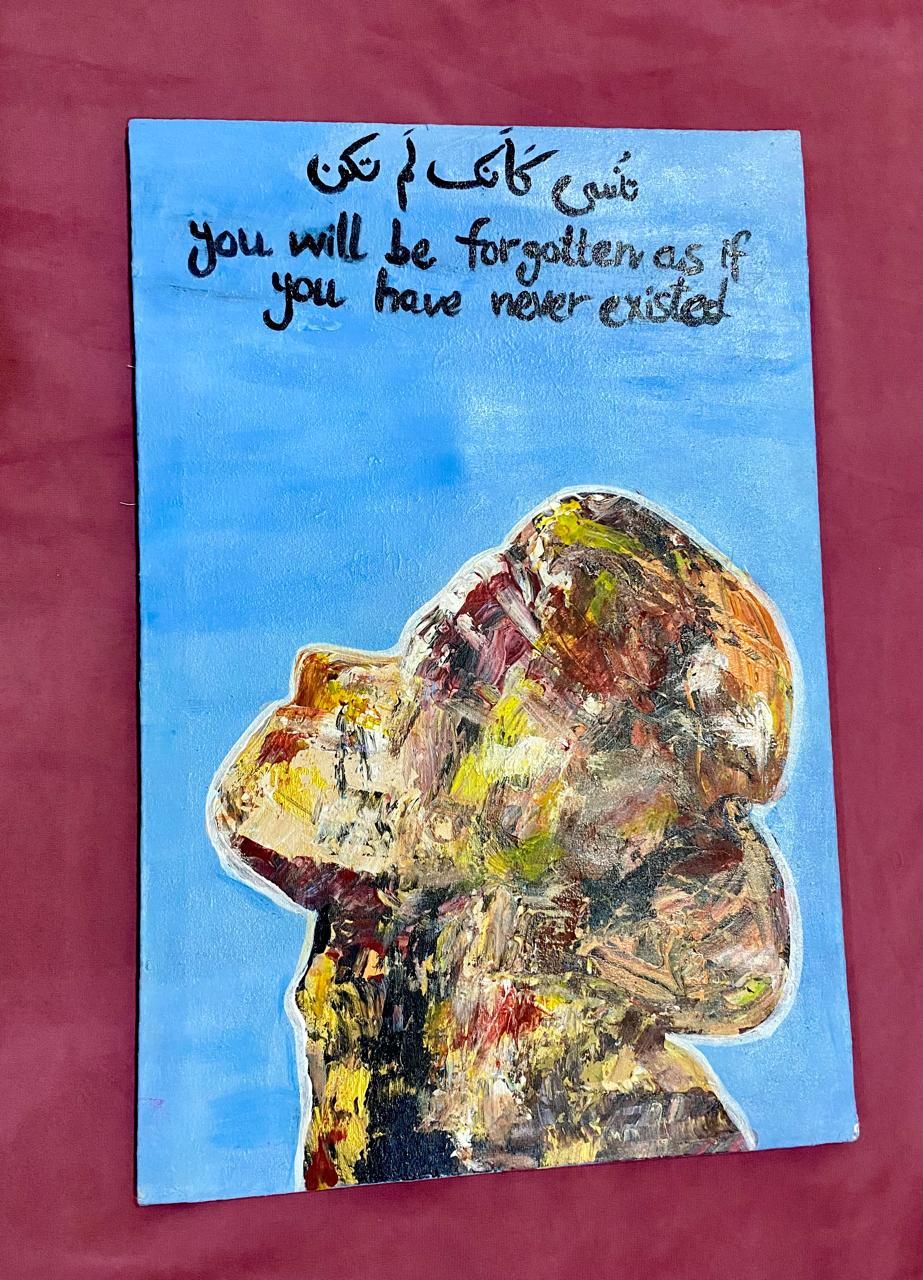 تُنسى كَأنك لَم تكن
you will be forgotten as if
you have never existed